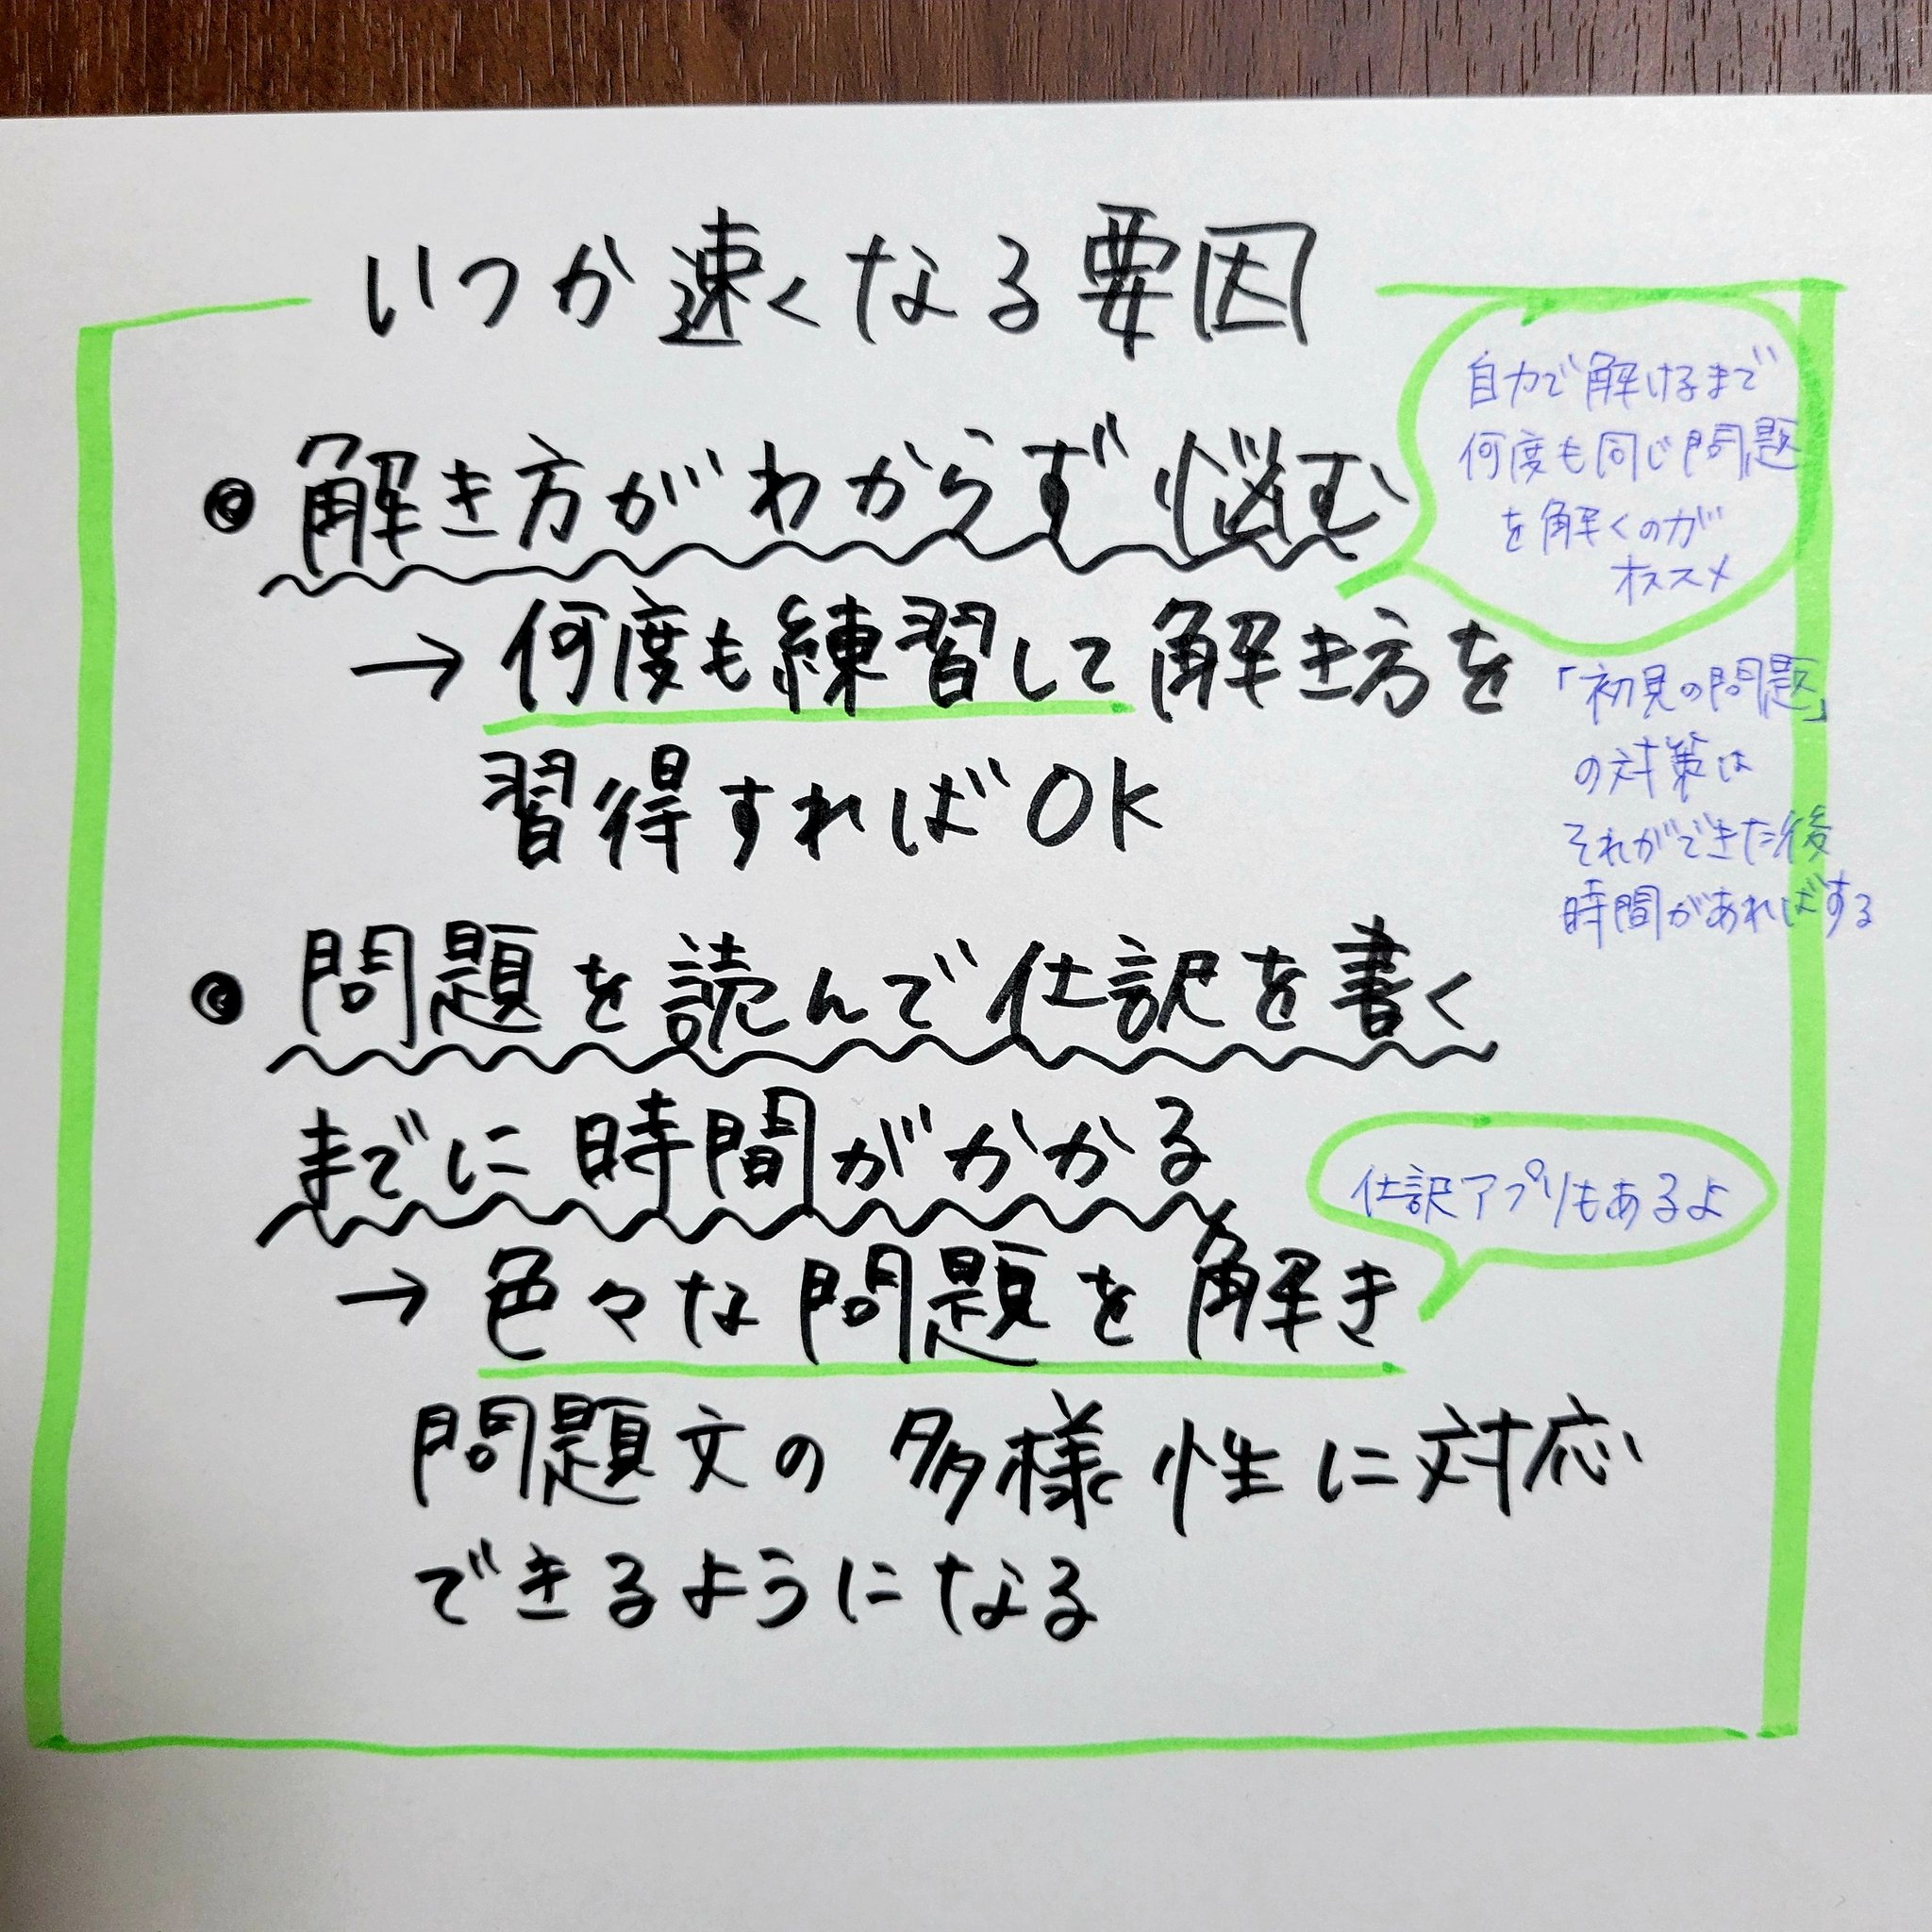 いつか速くなる要因
• 解き方がわからず悩む
→ 何度も練習して解き方を
習得すればOK
自力で解けるまで
何度も同じ問題
を解くのが
オススメ
「初見の問題」
の対策は
それができた後
時間があればする
• 問題を読んで仕訳を書く
までに時間がかかる
仕訳アプリもあるよ
→ 色々な問題を解き
問題文の多様性に対応
できるようになる